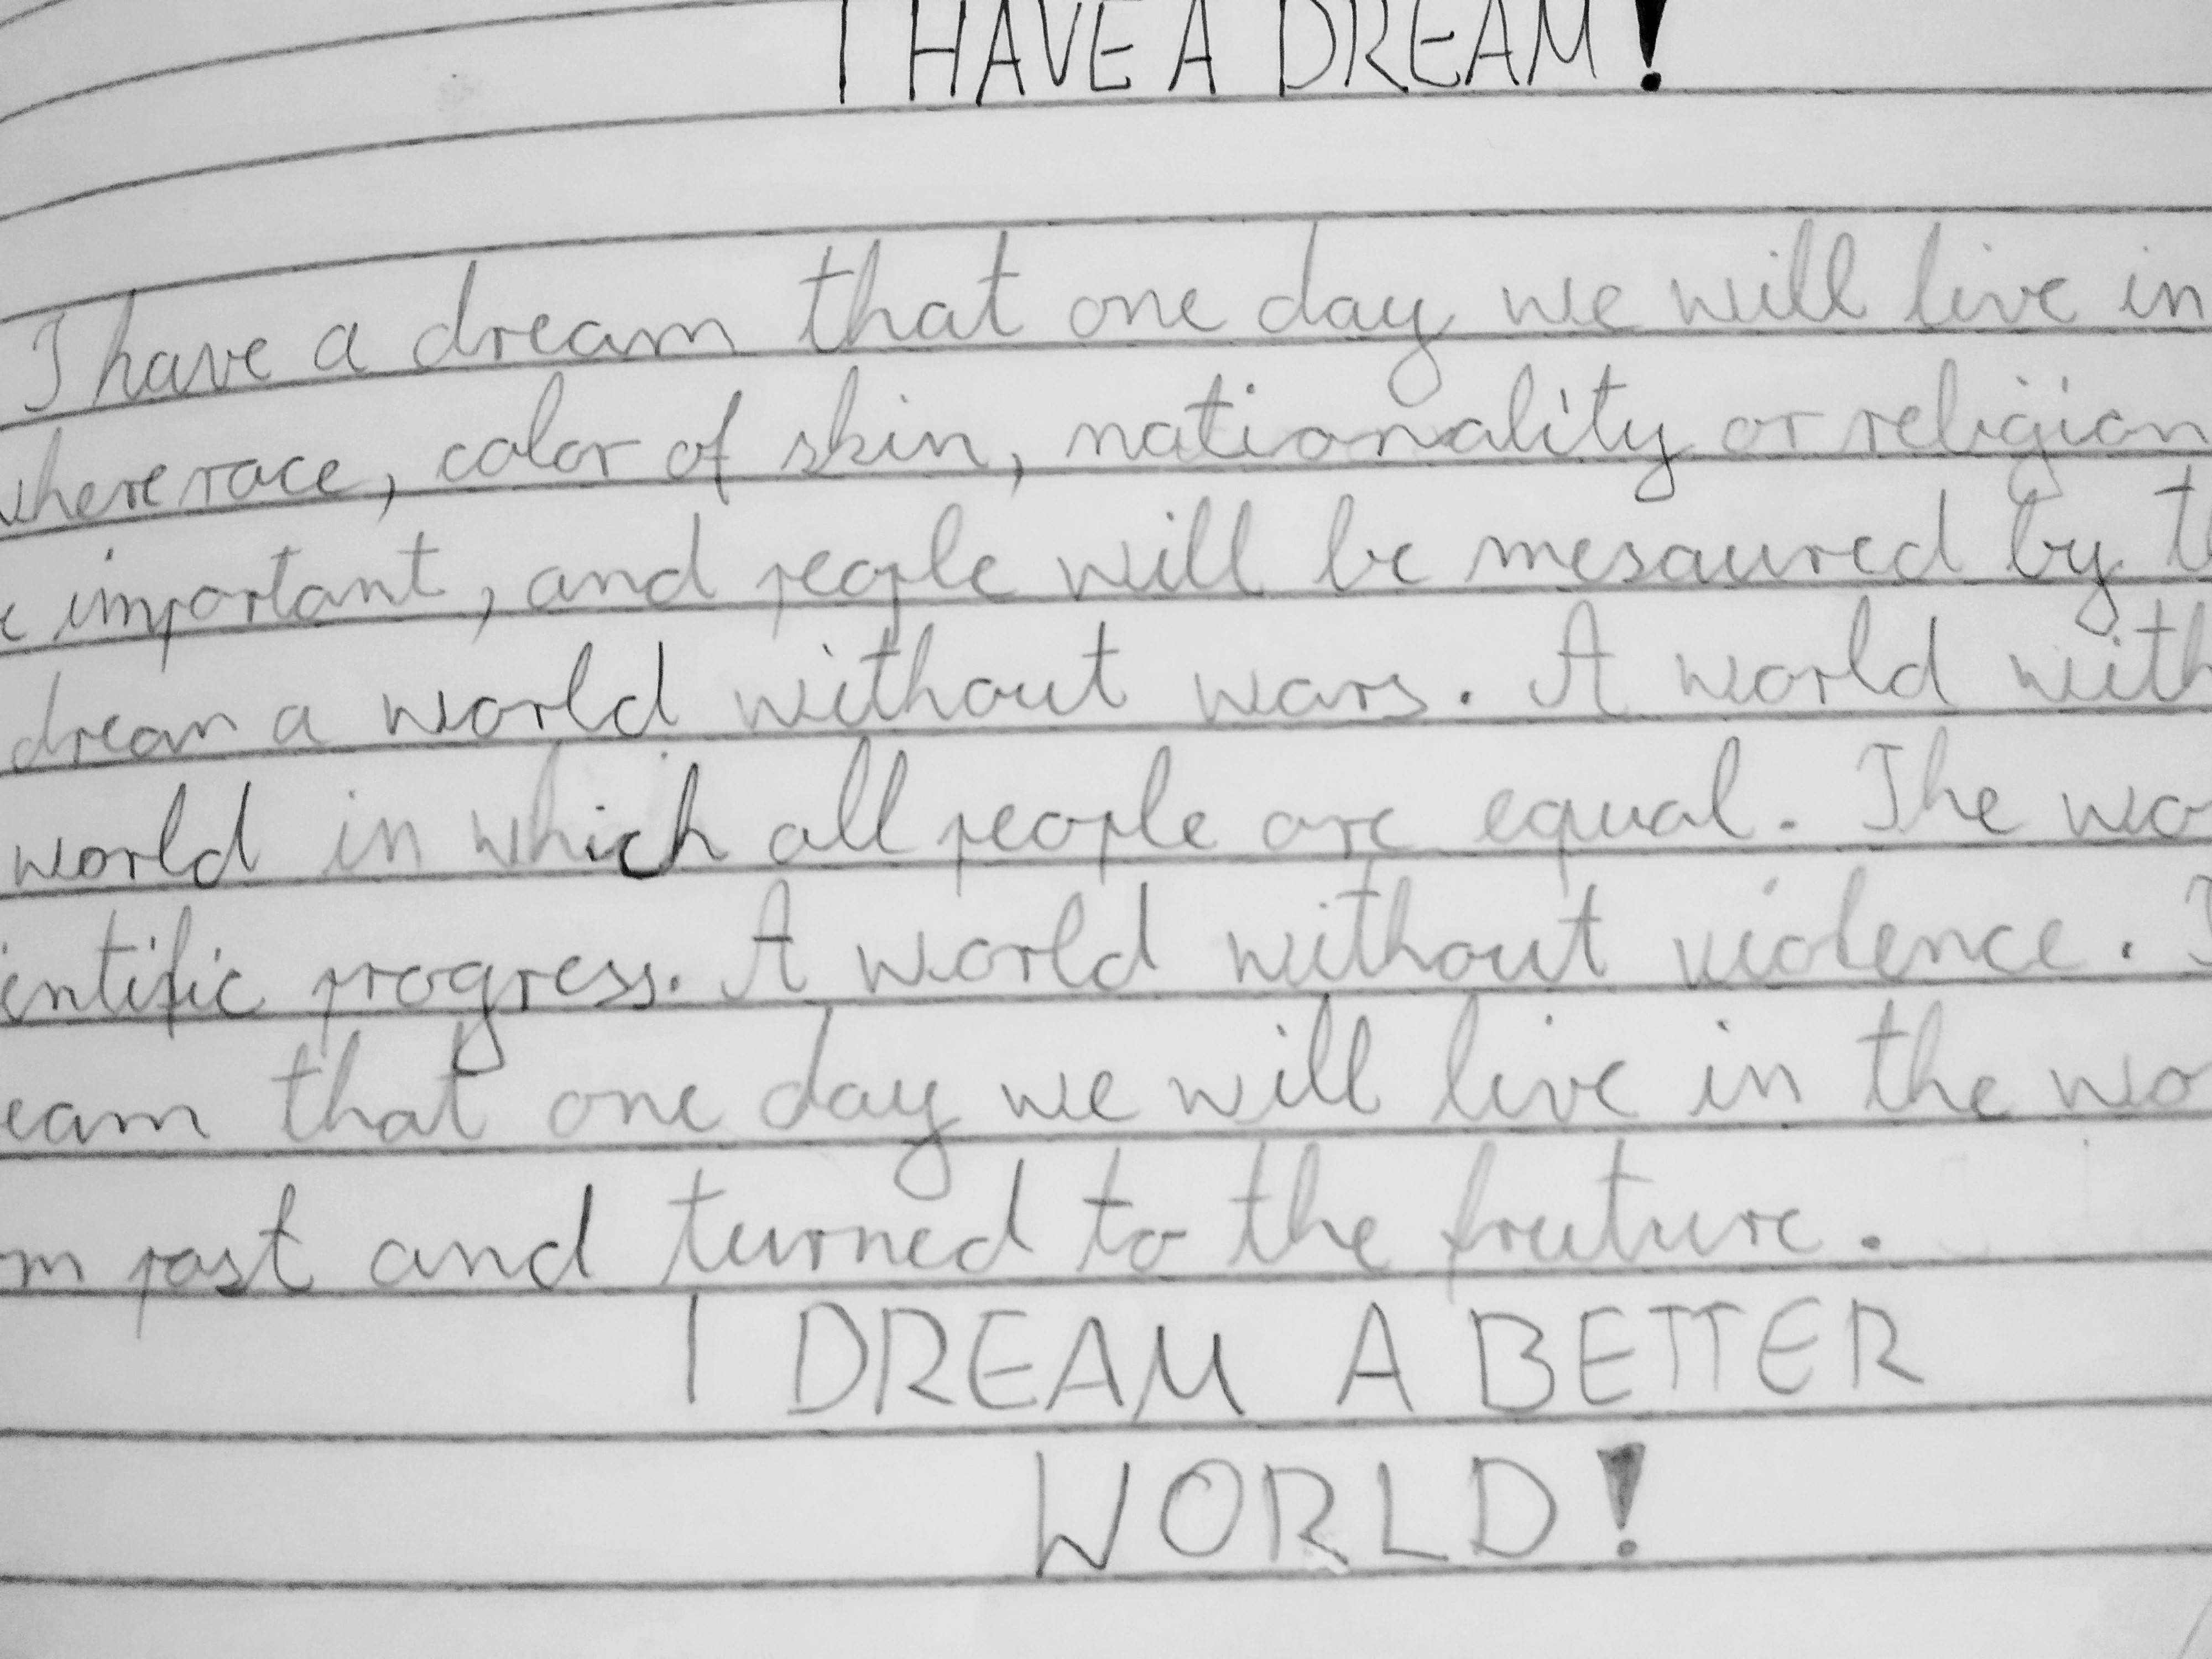 I HAVE A DREAM!
I have a dream that one day we will live in
where race, color of skin, nationality or religion
important, and people will be mesaured by
dream a world without wars. A world with
world in which all people are equal. The wo
ientific progress. A world without violence. I
eam that one day we will live in the wo
m past and turned to the fruture.
I DREAM A BETTER
WORLD!